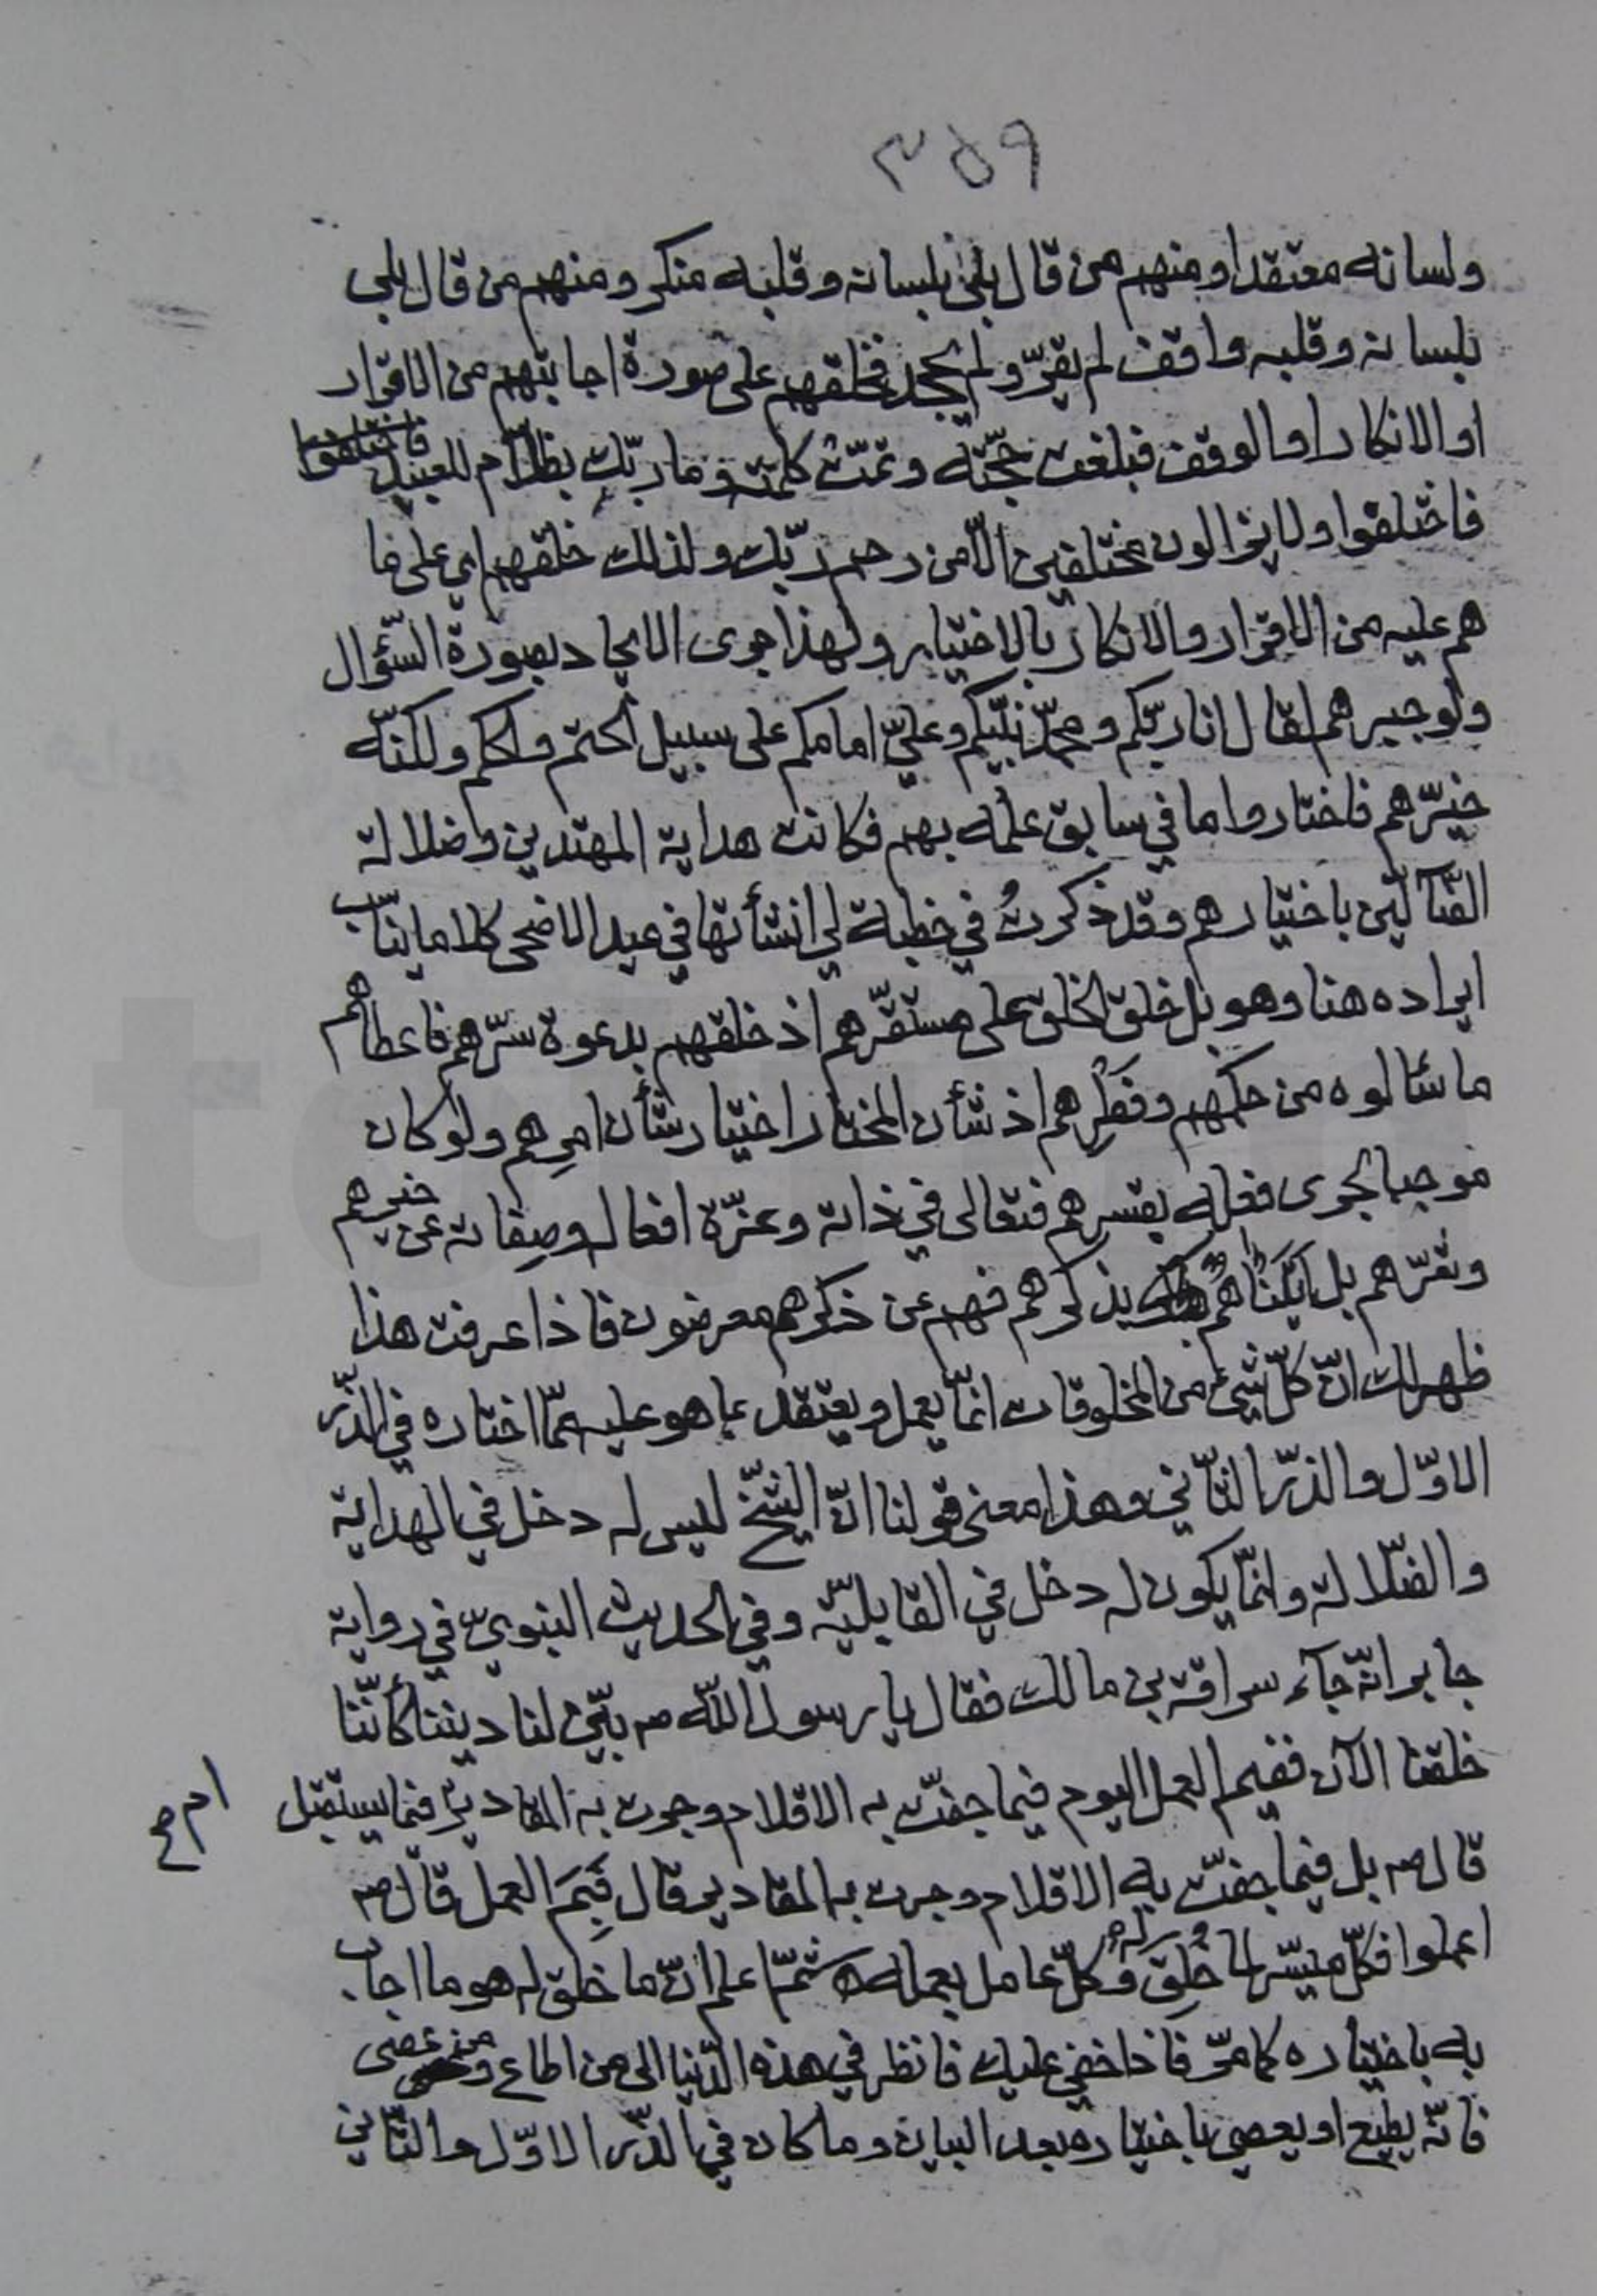 ٣٥٩
ولسانه معتقدا ومنهم من قال بلى بلسانه وقلبه منكر ومنهم من قال بلى
بلسانه وقلبه واقف لم يقرّ ولم يجحد فخلقهم على صورة اجابتهم من الاقرار
او الانكار او الوقف فبلغت حجّته وتمّت كلمته وما ربّك بظلّام للعبيد فاختلفوا
فاختلفوا ولا يزالون مختلفين الّا من رحم ربّك ولذلك خلقهم اي على ما
هم عليه من الاقرار والانكار بالاختيار ولهذا جرى الايجاد بصورة السّؤال
ولو جبرهم لقال انا ربّكم ومحمّد نبيّكم وعليّ امامكم على سبيل الحتم والحكم ولكنّه
خيّرهم فاختاروا ما في سابق علمه بهم فكانت هداية المهتدين وضلالة
الضّآلّين باختيارهم وقد ذكرتُ في خطبة لي انشأتها في عيد الاضحى كلاما يناسب
ايراده هنا وهو بل خلق الخلق على مستقرّهم اذ خلقهم بدعوة سرّهم فاعطاهم
ما سئالوه من حكمهم وفطرهم اذ شأن المختار اختيار شأن امرهم ولو كان
موجبا لجرى فعله بقسرهم فتعالى في ذاته وعزّة افعاله وصفاته عن خيرهم
وشرّهم بل اتيناهم بذكرهم فهم عن ذكرهم معرضون فاذا عرفت هذا
ظهر لك انّ كلّ شيء من المخلوقات انّما يعمل ويعتقد بما هو عليه ممّا اختاره في الذّر
الاوّل والذرّ الثّاني وهذا معنى قولنا انّ الشّبح ليس له دخل في الهداية
والضّلالة وانّما يكون له دخل في القابليّة وفي الحديث النبويّ في رواية
جابر انّه جآء سراقة بن مالك فقال يا رسول اللّه ص بيّن لنا ديننا كأنّنا
خلقنا الآن ففيم العمل اليوم فيما جفّت به الاقلام وجرت به المقادير ام فيما يستقبل
قال ص بل فيما جفّت به الاقلام وجرت به المقادير قال فَفِيمَ العمل قال ص
اعملوا فكلّ ميسّر لما خُلِقَ له وكلّ عامل بعمله ثمّ اعلم انّ ما خلق له هو ما اجاب
به باختياره كما مرّ فاذا خفي عليك فانظر في هذه الدّنيا الى من اطاع ومن عصى
فانّه يطيع او يعصي باختياره بعد البيان وما كان في الذّر الاوّل والثّاني